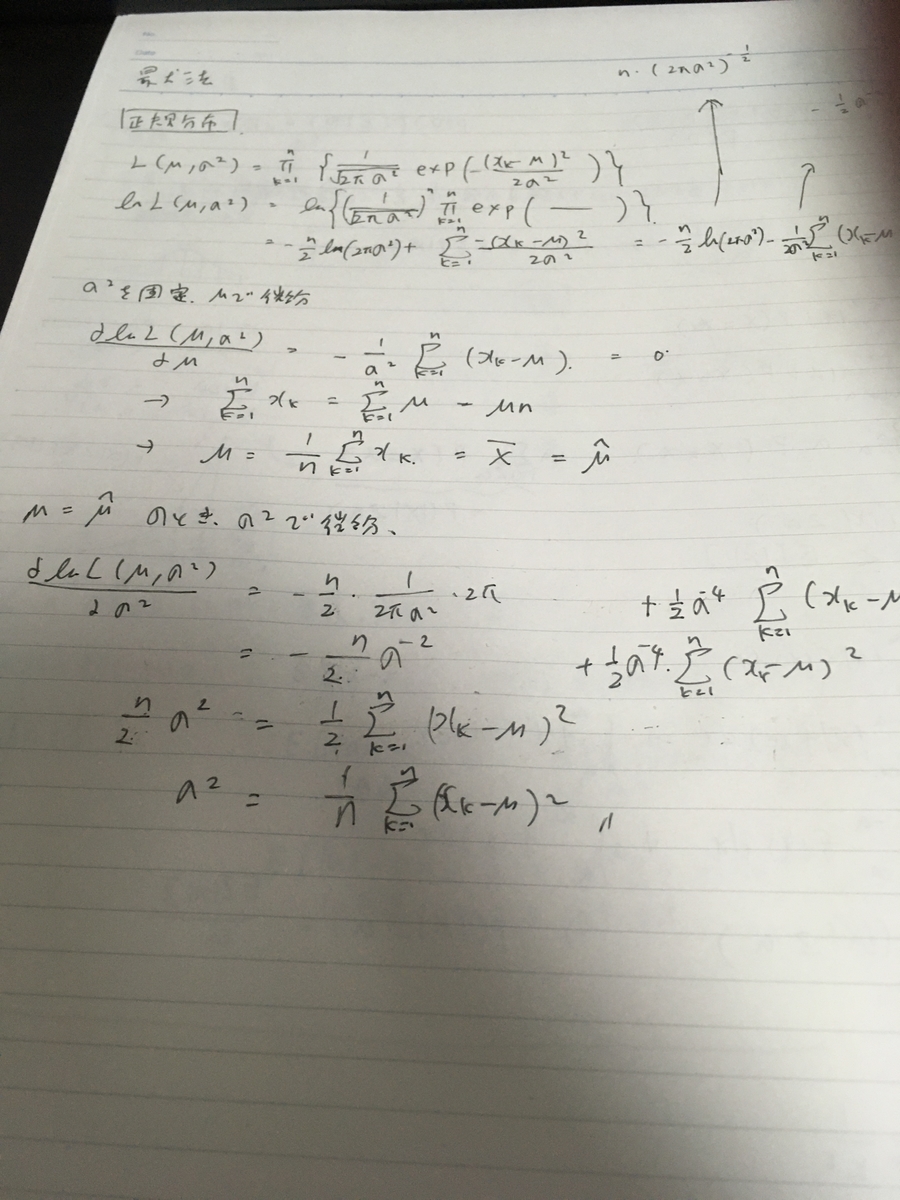 No.
Date
最尤法
n・(2πσ²)^{-1/2}
正規分布
L(μ,σ²) = ∏_{k=1}^{n} { 1/√(2πσ²) exp(-(x_k-μ)²/2σ²) }
ln L(μ,σ²) = ln{ (1/√(2πσ²))^n ∏_{k=1}^{n} exp( — ) }
= -n/2 ln(2πσ²) + Σ_{k=1}^{n} -(x_k-μ)²/2σ² = -n/2 ln(2πσ²) - 1/2σ² Σ_{k=1}^{n} (x_k-μ
σ²を固定. μで微分
∂ln L(μ,σ²)/∂μ = - 1/σ² Σ_{k=1}^{n} (x_k-μ). = 0
→ Σ_{k=1}^{n} x_k = Σ_{k=1}^{n} μ - μn
→ μ = 1/n Σ_{k=1}^{n} x_k. = x̄ = μ̂
μ = μ̂ のとき. σ²で微分、
∂ln L(μ,σ²)/∂σ² = - n/2 ・ 1/2πσ² ・2π + 1/2 σ^{-4} Σ_{k=1}^{n} (x_k-μ
= - n/2 σ^{-2} + 1/2 σ^{-4}. Σ_{k=1}^{n} (x_k-μ)²
n/2 σ² = 1/2 Σ_{k=1}^{n} (x_k-μ)²
σ² = 1/n Σ_{k=1}^{n} (x_k-μ)² 〃